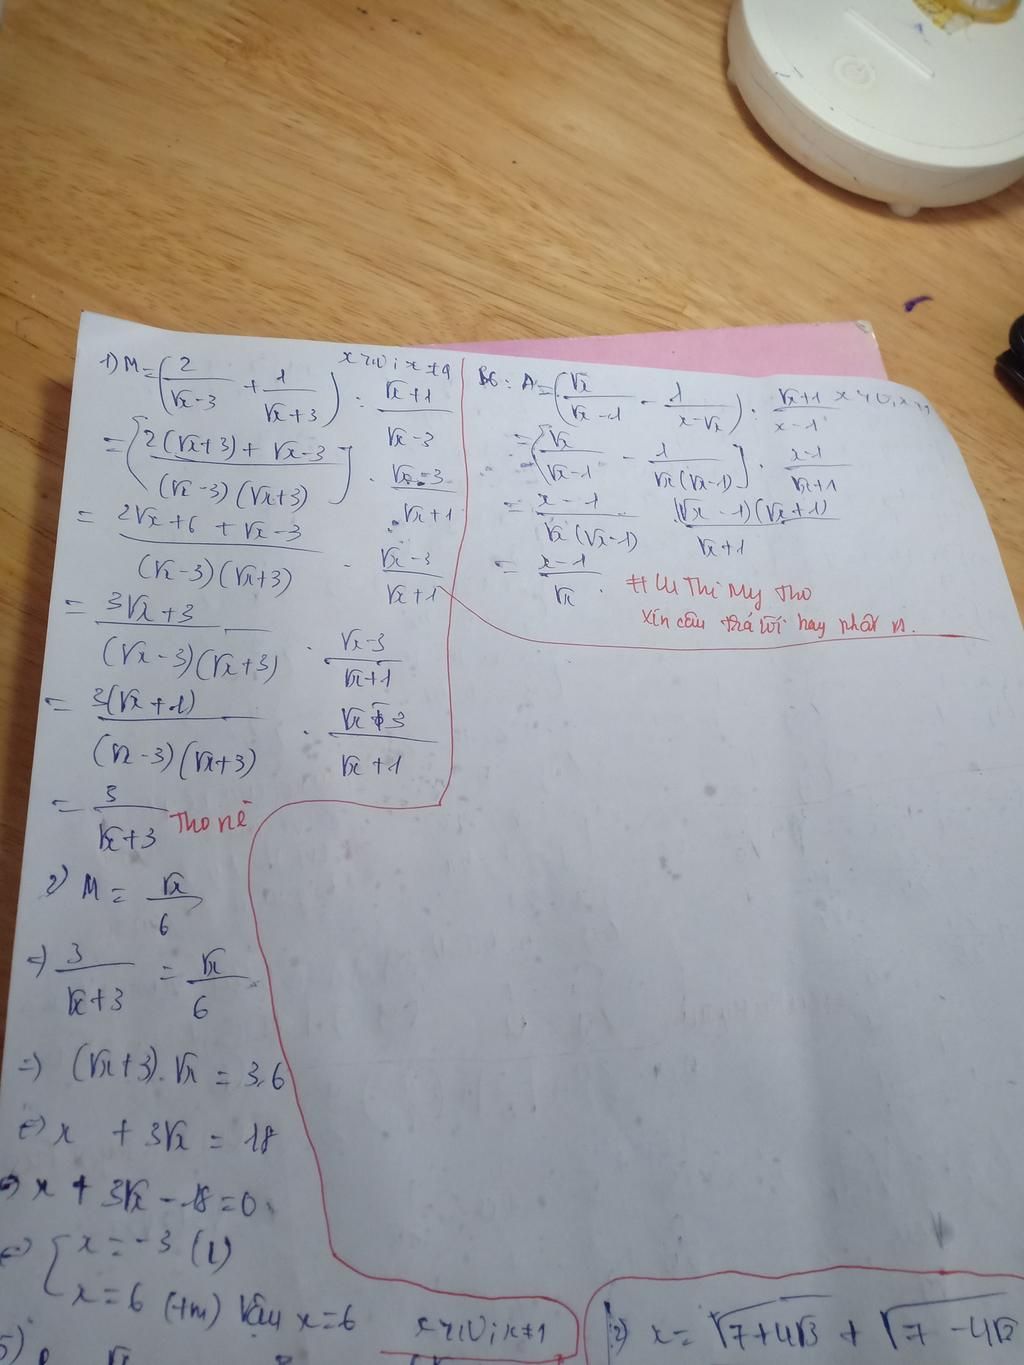 1) M = (2/(√x-3) + 1/(√x+3)) : (√x+1)/(√x-3)
= [(2(√x+3) + √x-3)/((√x-3)(√x+3))] . (√x-3)/(√x+1)
= (2√x+6 + √x-3)/((√x-3)(√x+3)) . (√x-3)/(√x+1)
= (3√x+3)/((√x-3)(√x+3)) . (√x-3)/(√x+1)
= 3(√x+1)/((√x-3)(√x+3)) . (√x-3)/(√x+1)
= 3/(√x+3) Tho nè
2) M = √x/6
=) 3/(√x+3) = √x/6
=) (√x+3).√x = 3.6
x + 3√x = 18
x + 3√x - 18 = 0
x = -3 (L)
x = 6 (tm) Vậy x=6
5)
B6: A = (√x/(√x-1) - 1/(x-√x)) : (√x+1)/(x-1)
= [√x/(√x-1) - 1/(√x(√x-1))] . (x-1)/(√x+1)
= (x-1)/(√x(√x-1)) . ((√x-1)(√x+1))/(√x+1)
= (x-1)/√x .
Thi My Tho
xin câu trả lời hay nhất
2) x = √(7+4√3) + √(7-4√